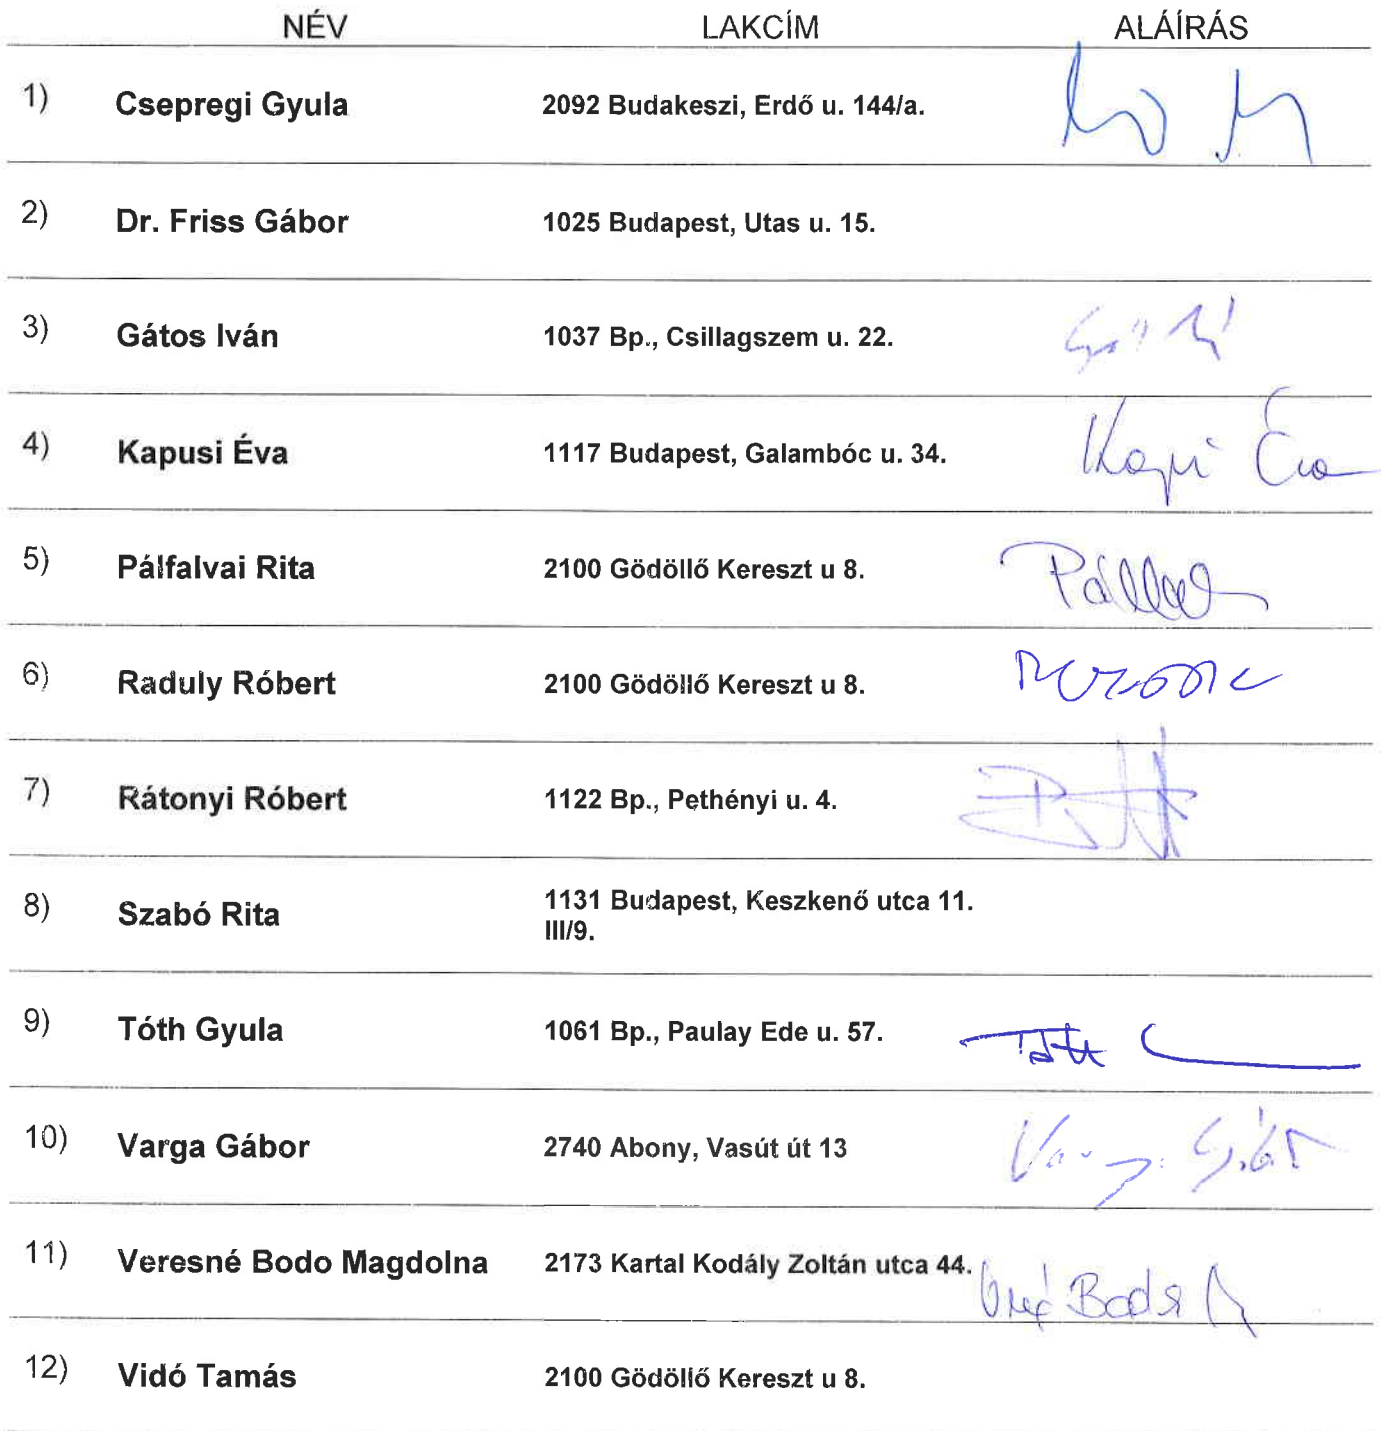 NÉV LAKCÍM ALÁÍRÁS
1) Csepregi Gyula 2092 Budakeszi, Erdő u. 144/a.
2) Dr. Friss Gábor 1025 Budapest, Utas u. 15.
3) Gátos Iván 1037 Bp., Csillagszem u. 22.
4) Kapusi Éva 1117 Budapest, Galambóc u. 34. Éva
5) Pálfalvai Rita 2100 Gödöllő Kereszt u 8.
6) Raduly Róbert 2100 Gödöllő Kereszt u 8.
7) Rátonyi Róbert 1122 Bp., Pethényi u. 4.
8) Szabó Rita 1131 Budapest, Keszkenő utca 11.
III/9.
9) Tóth Gyula 1061 Bp., Paulay Ede u. 57.
10) Varga Gábor 2740 Abony, Vasút út 13
11) Veresné Bodo Magdolna 2173 Kartal Kodály Zoltán utca 44.
12) Vidó Tamás 2100 Gödöllő Kereszt u 8.